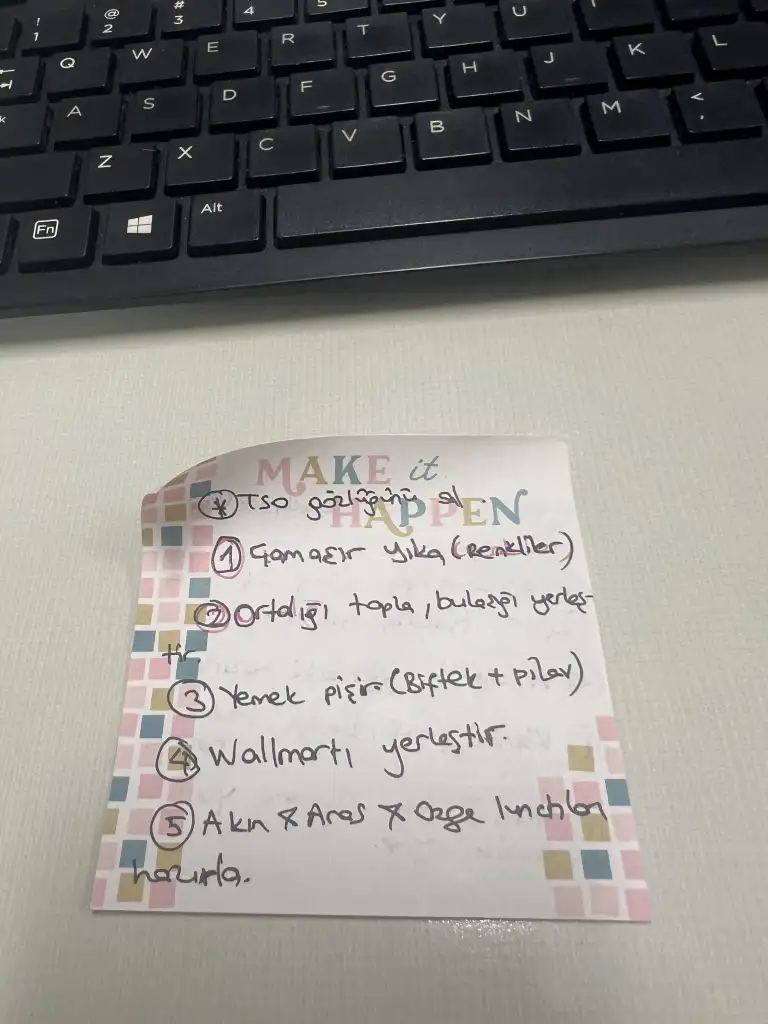 ! 1
@ 2
# 3
4
5
Q W E R T Y U I
A S D F G H J K L
Z X C V B N M < ,
Fn Alt
MAKE it
HAPPEN
* TSO gözlüğünü al.
1 Çamaşır yıka (Renkliler)
2 Ortalığı topla, bulaşığı yerleş-
tir.
3 Yemek pişir (Biftek + pilav)
4 Wallmartı yerleştir.
5 Akın & Aras & Özge lunchları
hazırla.